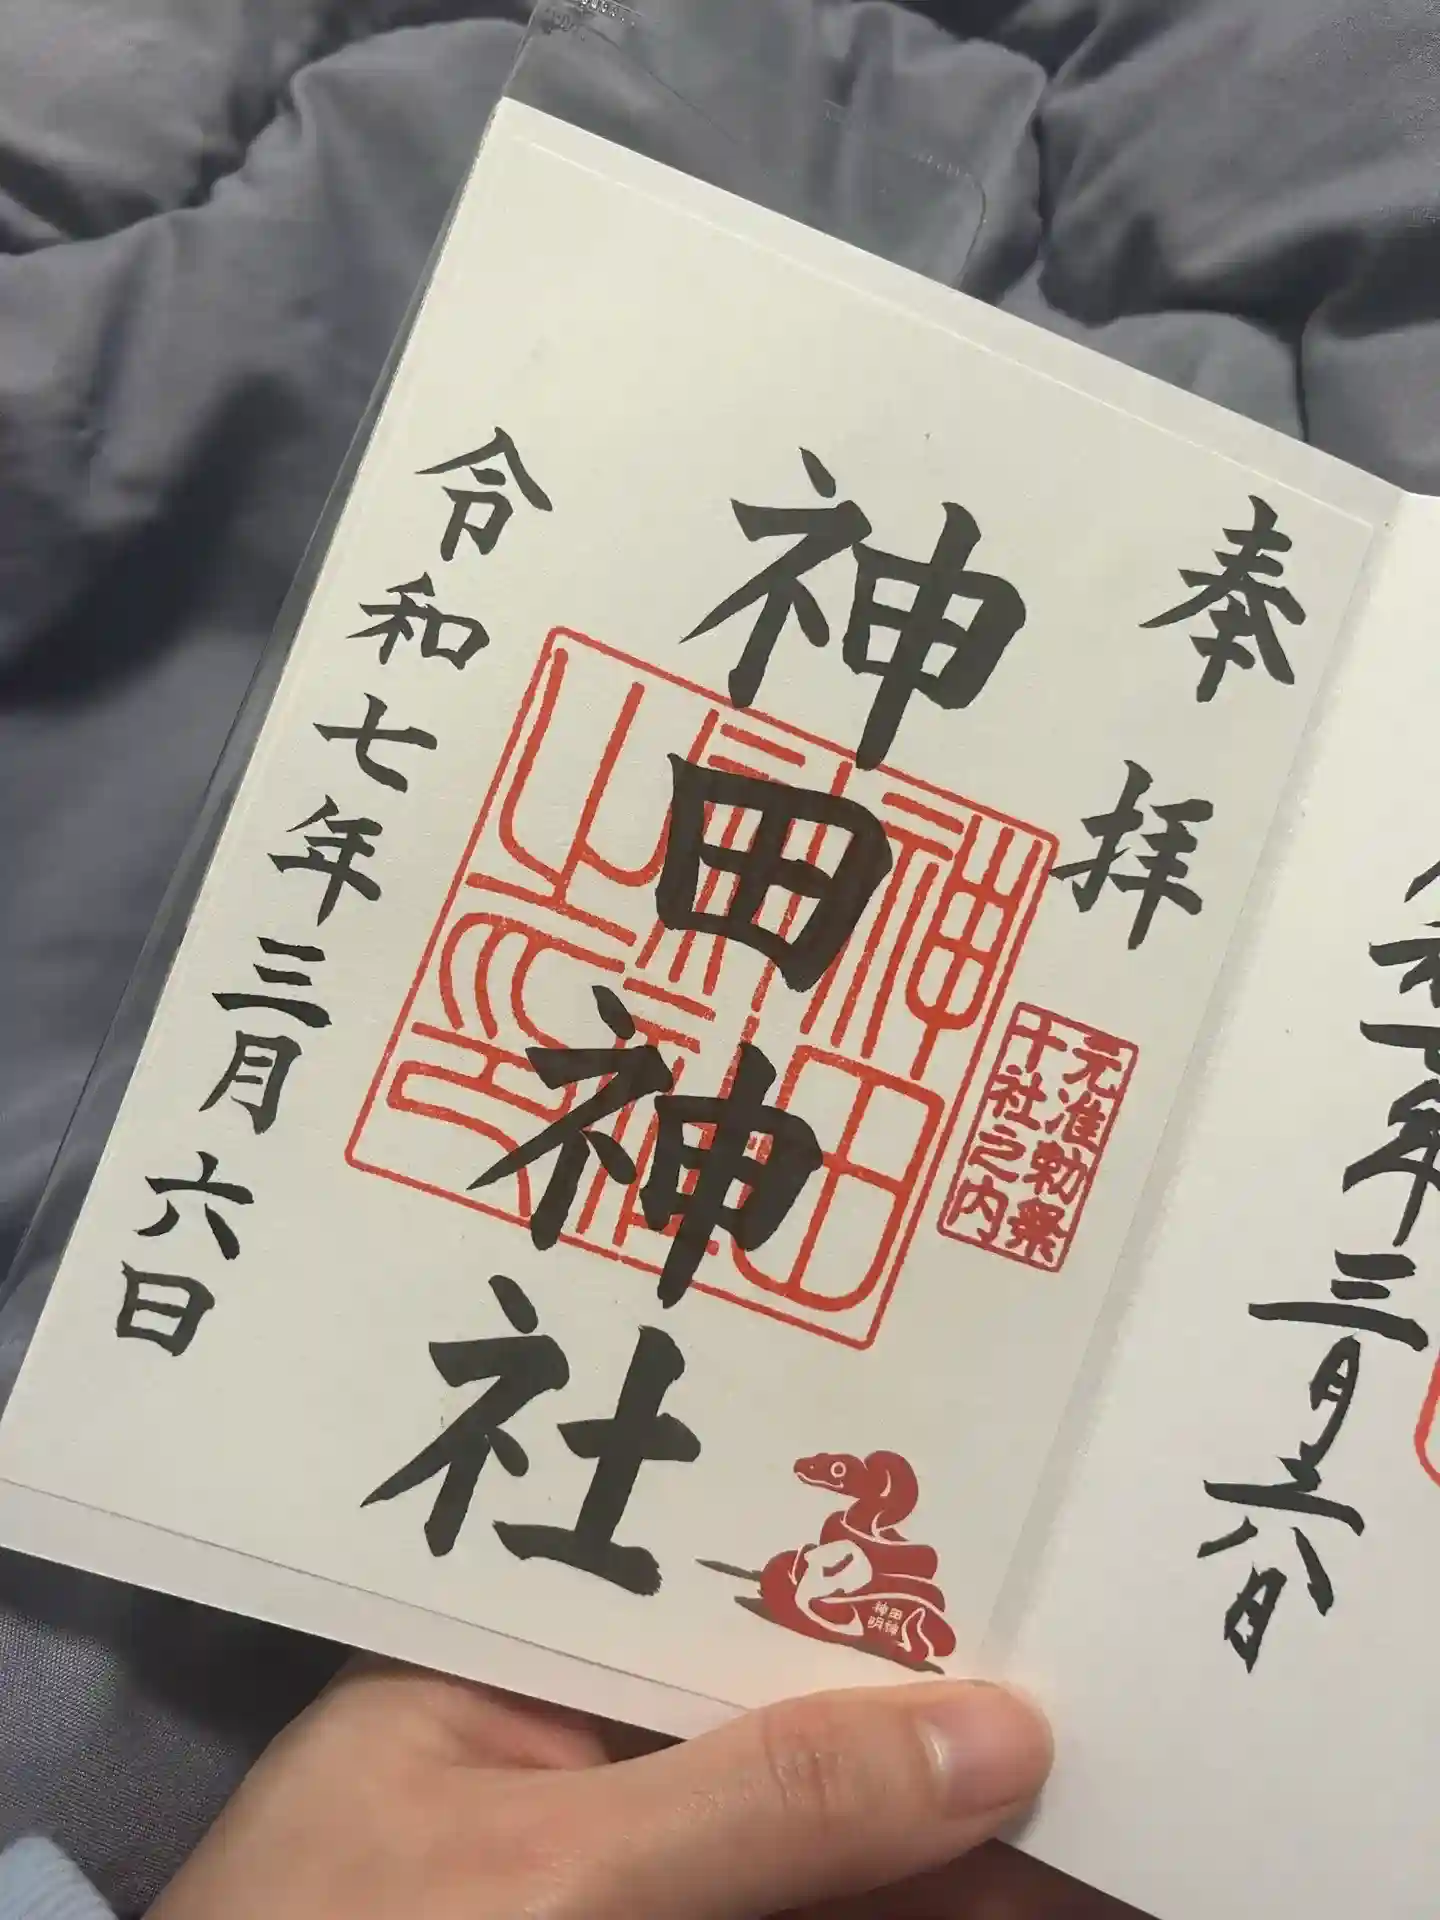 奉拝
元准勅祭
十社之内
神田神社
神田
神社
之印
巳
神田
明神
令和七年三月六日
令和七年三月六日